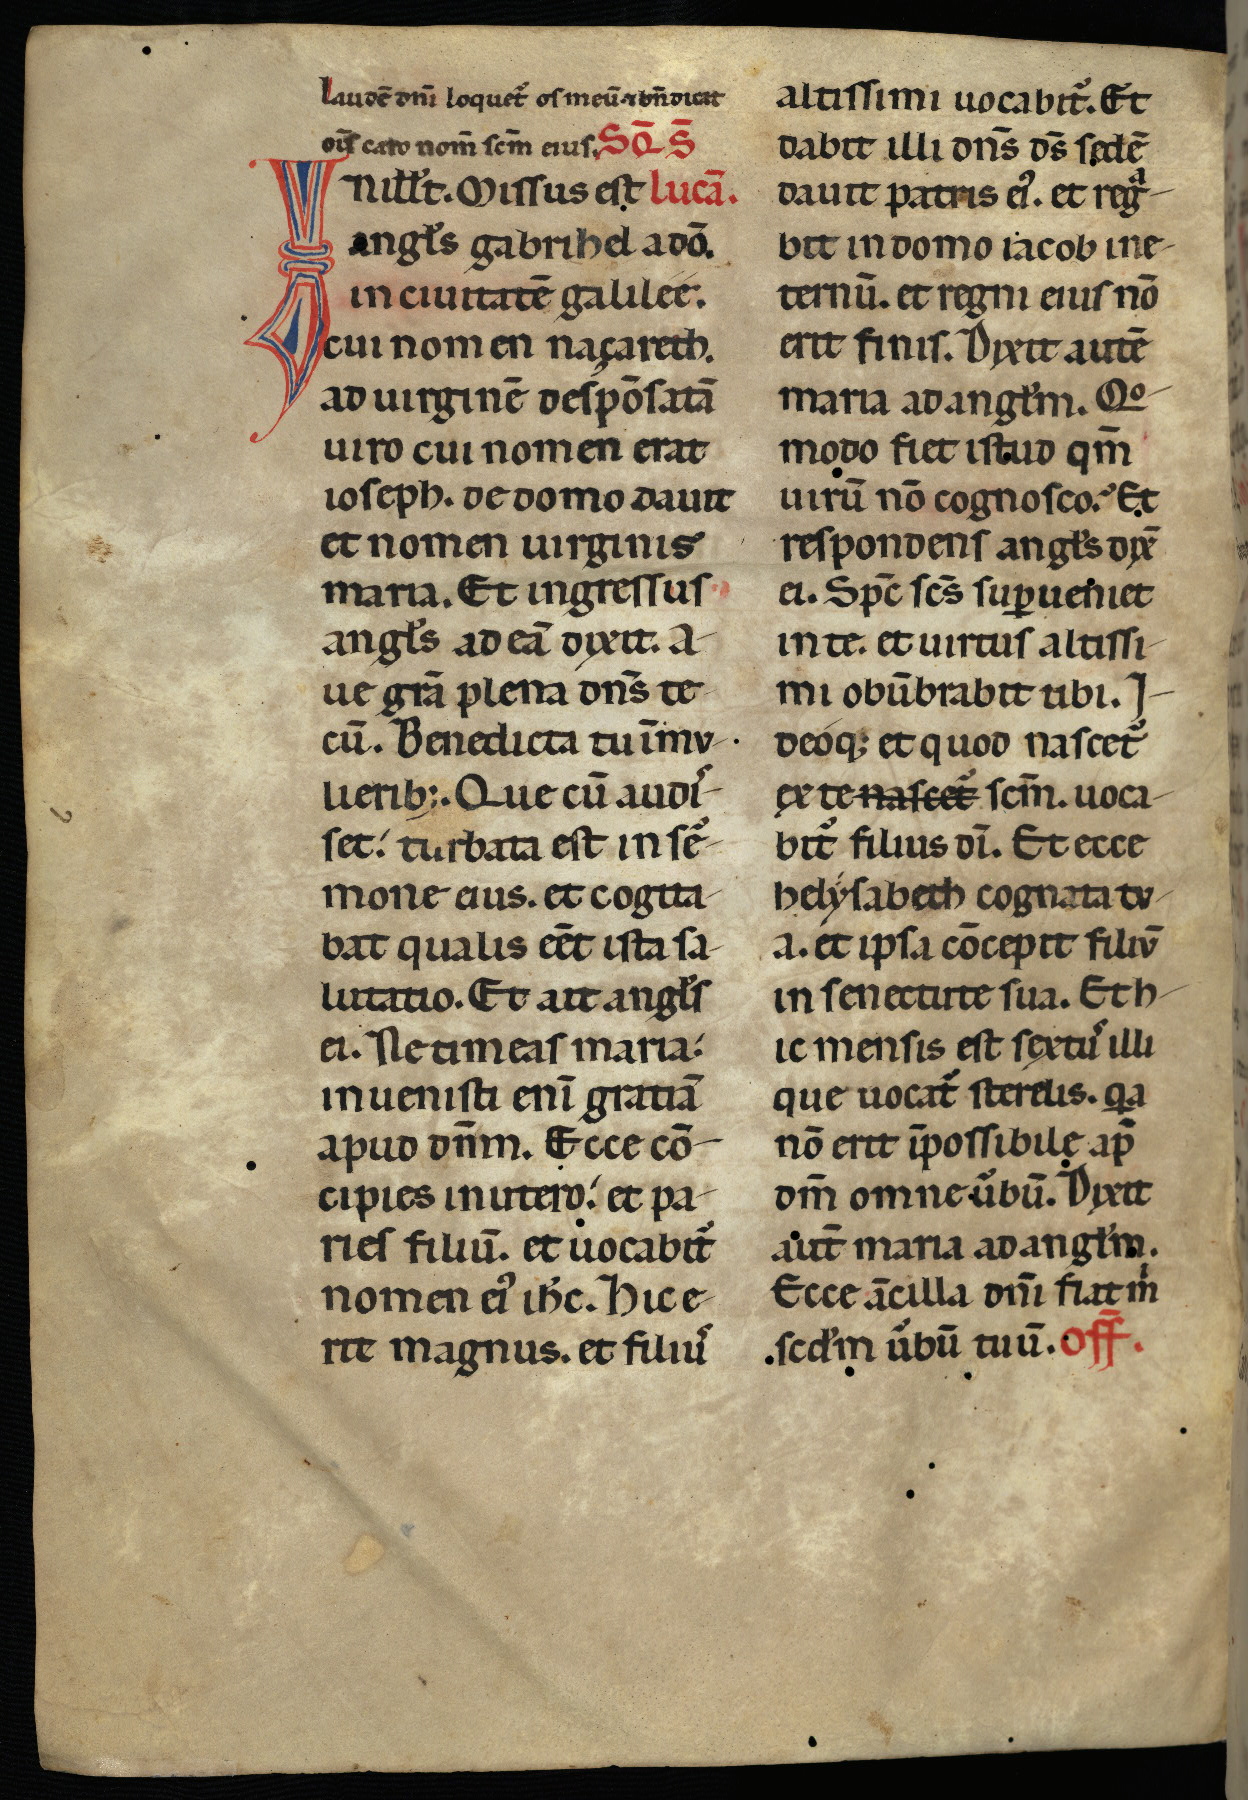 Laudē dn̄i loquet᷑ os meū ⁊ bn̄dicat
oīs caro nom̄ scm̄ eius. SQ̄ S̄
In ill̄t. Missus est lucā.
angl̄s gabrihel a dō.
in ciuitatē galilee.
cui nomen naçareth.
ad uirginē despōsatā
uiro cui nomen erat
ioseph. de domo dauit
et nomen uirginis
maria. Et ingressus
angl̄s ad eā dixit. A-
ue grā plena dn̄s te-
cū. Benedicta tu ī mu-
lierib;. Que cū audis-
set: turbata est in ser-
mone eius. et cogita-
bat qualis eēt ista sa-
lutatio. Et ait angl̄s
ei. Ne timeas maria:
inuenisti enī gratiā
apud dn̄m. Ecce cō-
cipies in utero: et pa-
ries filiū. et uocabit᷑
nomen ei᾽ ih̄c. Hic e-
rit magnus. et filiu᷒
altissimi uocabit᷑. Et
dabit illi dn̄s ds̄ sedē
dauit patris ei᾽. et regͣ-
bit in domo iacob in e-
ternū. et regni eius nō
erit finis. Dixit autē
maria ad angl̄m. Qo-
modo fiet istud qm̄
uirū nō cognosco. Et
respondens angl̄s dix̄
ei. Sp̄c sc̄s sup̱ueniet
in te. et uirtus altissi-
mi obūbrabit tibi. I-
deoq; et quod nascet᷑
ex te nascet᷑ scm̄. uoca-
bit᷑ filius dī. Et ecce
helẏsabeth cognata tu-
a. et ipsa cōcepit filiū
in senectute sua. Et h-
ic mensis est sextu᷒ illi
que uocat᷑ sterelis. qa
nō erit īpossibile ap̄
dm̄ omne u᷑bū. Dixit
aut̄ maria ad angl̄m.
Ecce ācilla dn̄i fiat mͥ
scd̄m u᷑bū tuū. Off̄.